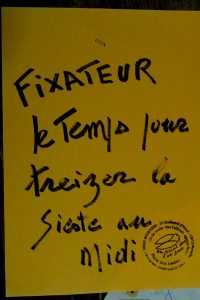 FIXATEUR
le Temps pour
treizer la
Sieste au
Midi